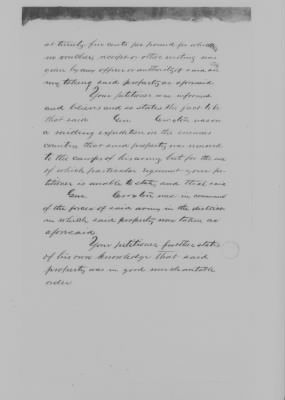 at twenty five cents per pound for which
no voucher, receipt or other writing was
given by any officer or authority of said ar
my taking said property as aforesaid
Your petitioner was informed
and believes and so states the fact to be
that said Gen Croxton was on
a raiding expedition in the enemies
country that said property was moved
to the camps of his army but for the use
of which particular regiment your pe-
titioner is unable to state, and that said
Gen Croxton was in command
of the forces of said army in the district
in which said property was taken as
aforesaid
Your petitioner further states
of his own knowledge that said
property was in good merchantable
order